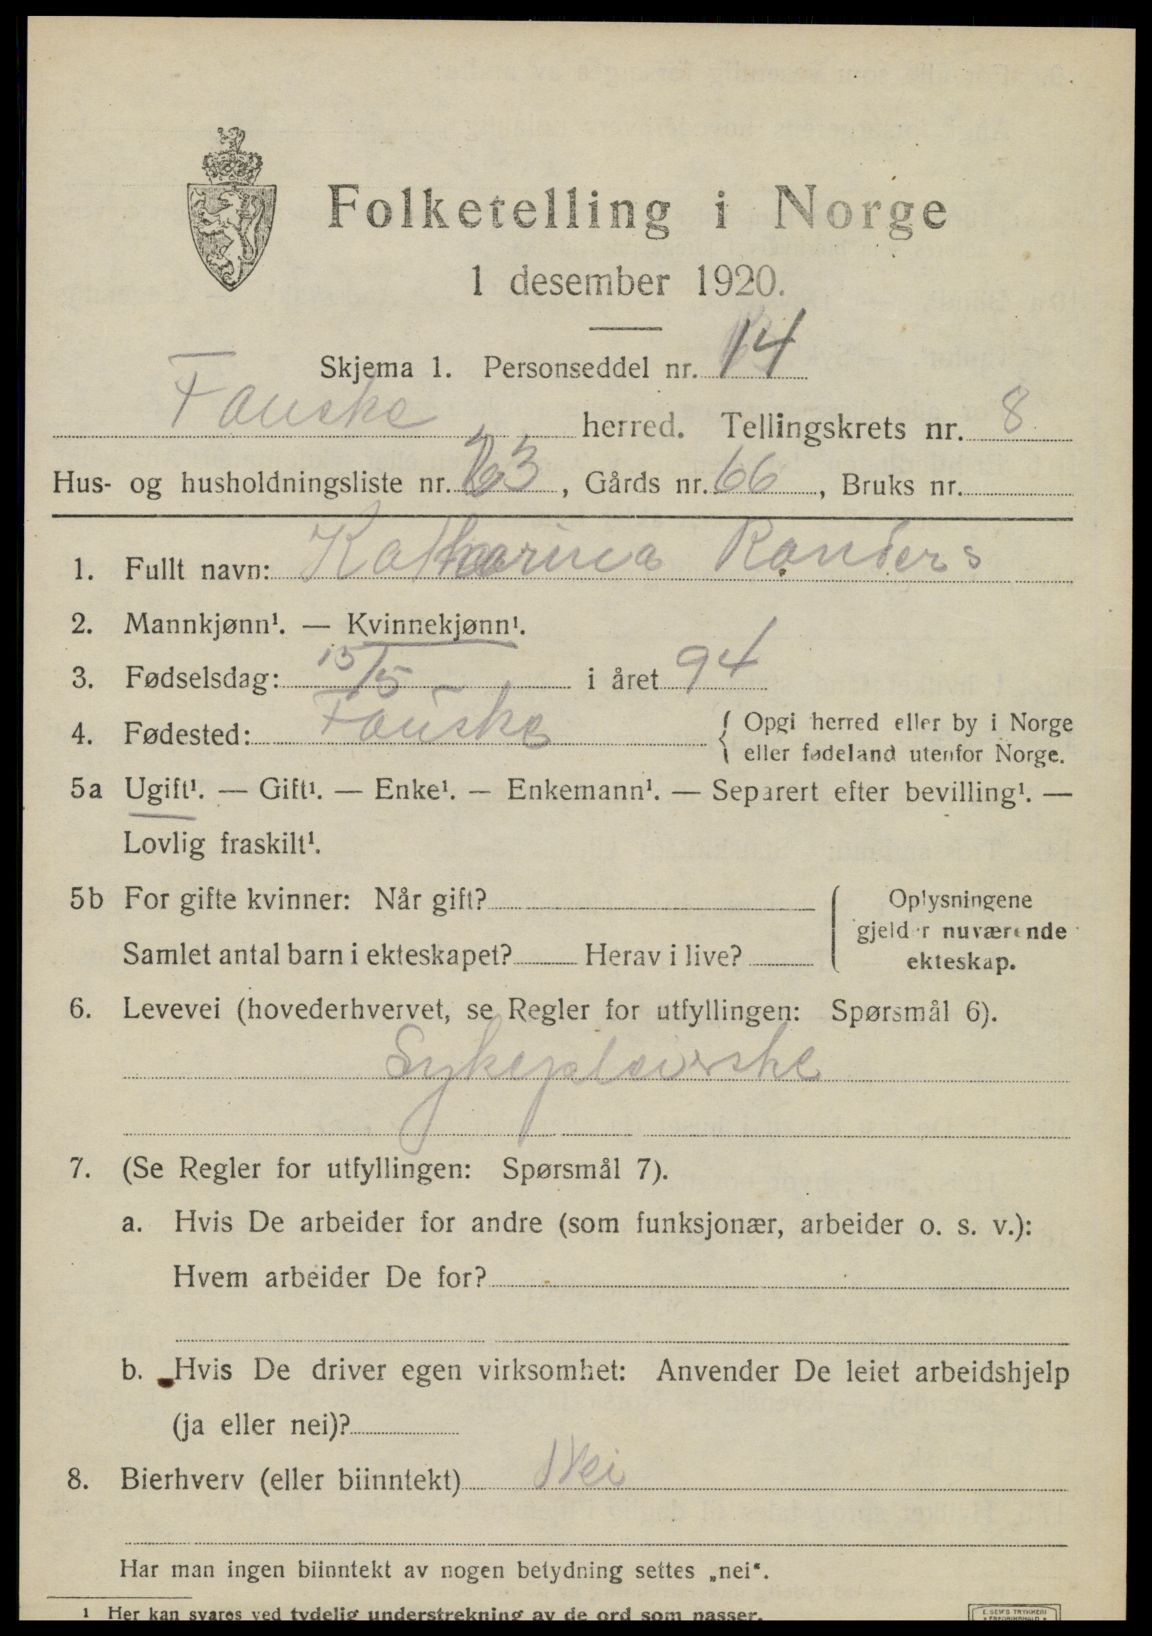 Folketelling i Norge
1 desember 1920.
Skjema 1. Personseddel nr. 14
Fauske herred. Tellingskrets nr. 8
Hus- og husholdningsliste nr. 63, Gårds nr. 66, Bruks nr.
1. Fullt navn: Katharina Randers
2. Mannkjønn¹. — Kvinnekjønn¹.
3. Fødselsdag: 15/5 i året 94
4. Fødested: Fauske { Opgi herred eller by i Norge
eller fødeland utenfor Norge.
5a Ugift¹. — Gift¹. — Enke¹. — Enkemann¹. — Separert efter bevilling¹. —
Lovlig fraskilt¹.
5b For gifte kvinner: Når gift?
Samlet antal barn i ekteskapet? Herav i live?
{ Oplysningene
gjelder nuværende
ekteskap.
6. Levevei (hovederhvervet, se Regler for utfyllingen: Spørsmål 6).
Sykepleierske
7. (Se Regler for utfyllingen: Spørsmål 7).
a. Hvis De arbeider for andre (som funksjonær, arbeider o. s. v.):
Hvem arbeider De for?
b. Hvis De driver egen virksomhet: Anvender De leiet arbeidshjelp
(ja eller nei)?
8. Bierhverv (eller biinntekt) Nei
Har man ingen biinntekt av nogen betydning settes „nei“.
¹ Her kan svares ved tydelig understrekning av de ord som passer.